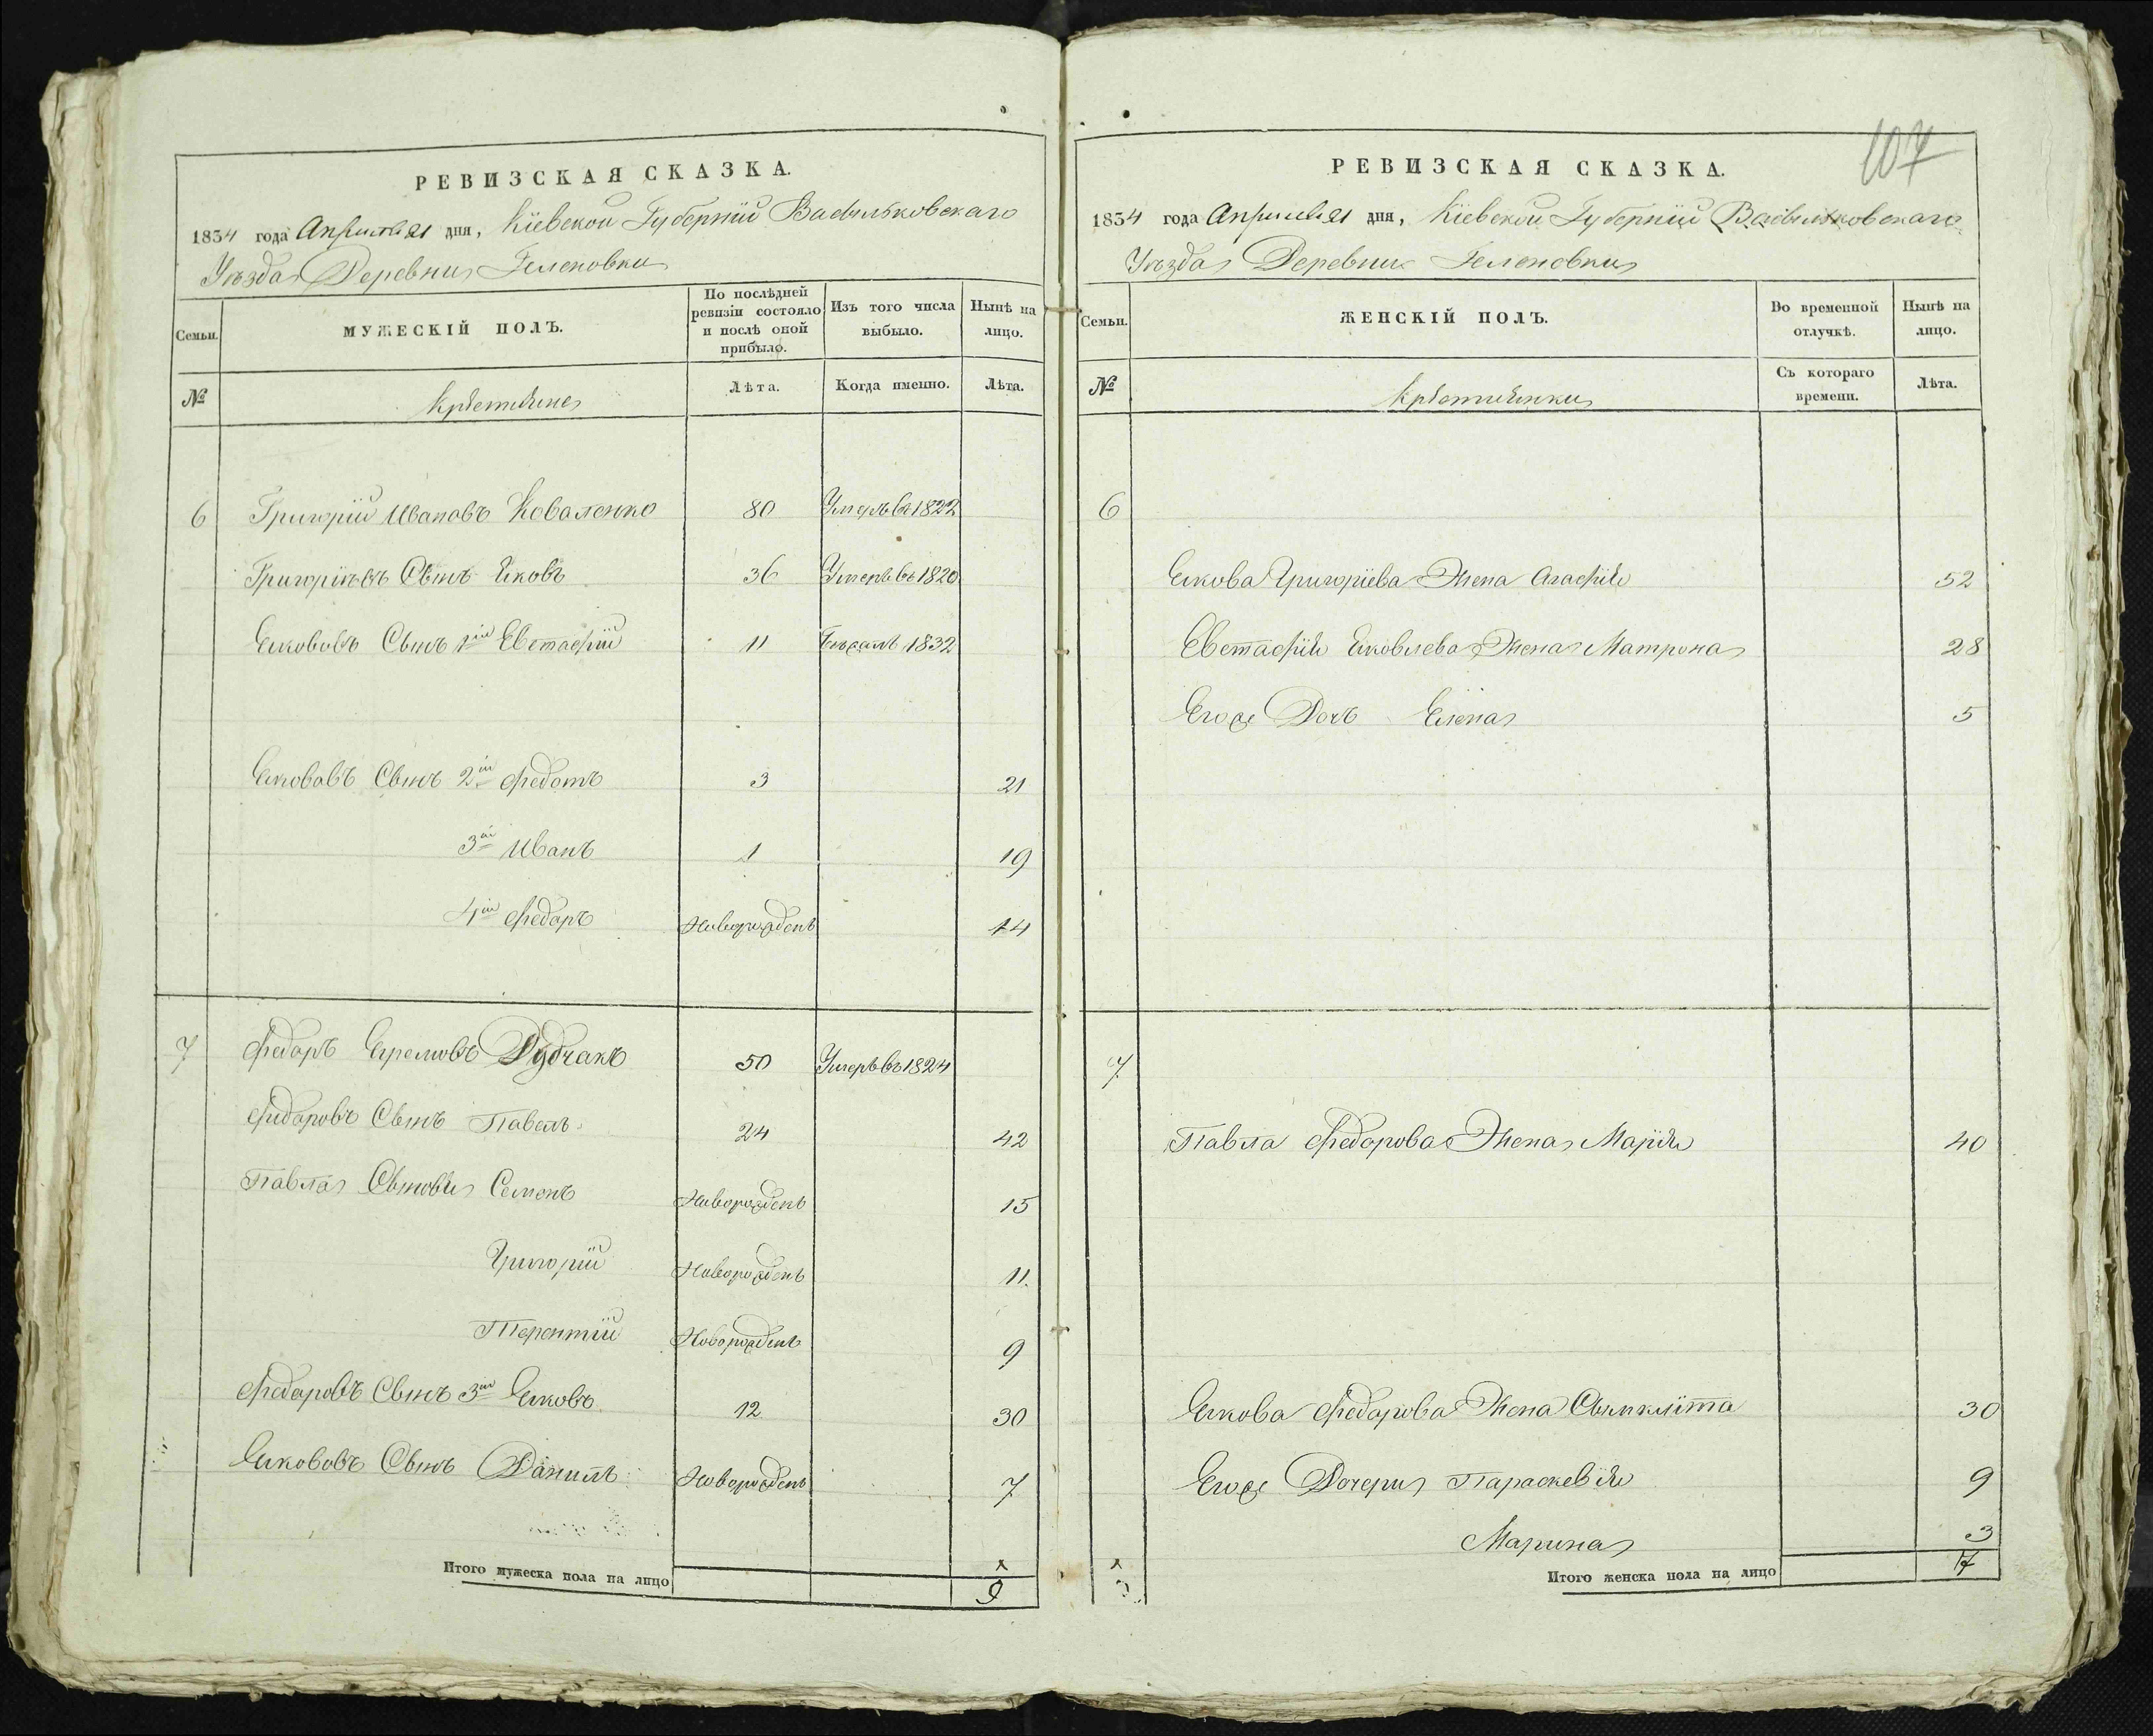 РЕВИЗСКАЯ СКАЗКА.
1834 года Апреля 21 дня, Кіевской Губерніи Васильковскаго
Уѣзда Деревни Геленовки
Семьи.
МУЖЕСКІЙ ПОЛЪ.
По послѣдней ревизіи состояло и послѣ оной прибыло.
Изъ того числа выбыло.
Нынѣ на лицо.
№
Крѣстьяне
Лѣта.
Когда именно.
Лѣта.
6 Григорій Ивановъ Коваленко 80 Умеръ въ 1822
Григоріевъ Сынъ Яковъ 36 Умеръ въ 1820
Якововъ Сынъ 1й Евстафій 11 1832
Яковавъ Сынъ 2й Федотъ 3 21
3й Иванъ 1 19
4й Федоръ Новорожденъ 14
7 Федоръ Еремовъ Дудчакъ 50 Умеръ въ 1824
Федоровъ Сынъ Павелъ 24 42
Павла Сыновья Семенъ Новорожденъ 15
Григорій Новорожденъ 11.
Терентій Новорожденъ 9
Федоровъ Сынъ 3й Яковъ 12 30
Якововъ Сынъ Данилъ Новорожденъ 7
Итого мужеска пола на лицо 9
107
РЕВИЗСКАЯ СКАЗКА.
1834 года Апреля 21 дня, Кіевской Губерніи Васильковскаго
Уѣзда Деревни Геленовки
Семьи.
ЖЕНСКІЙ ПОЛЪ.
Во временной отлучкѣ.
Нынѣ на лицо.
№
Крѣстьянки
Съ котораго времени.
Лѣта.
6
Якова Григоріева Жена Агафія 52
Евстафія Яковлева Жена Матрона 28
Егоже Дочь Елена 5
7
Павла Федорова Жена Марія 40
Якова Федорова Жена Сынклита 30
Егоже Дочери Параскевія 9
Марина 3
Итого женска пола на лицо 7